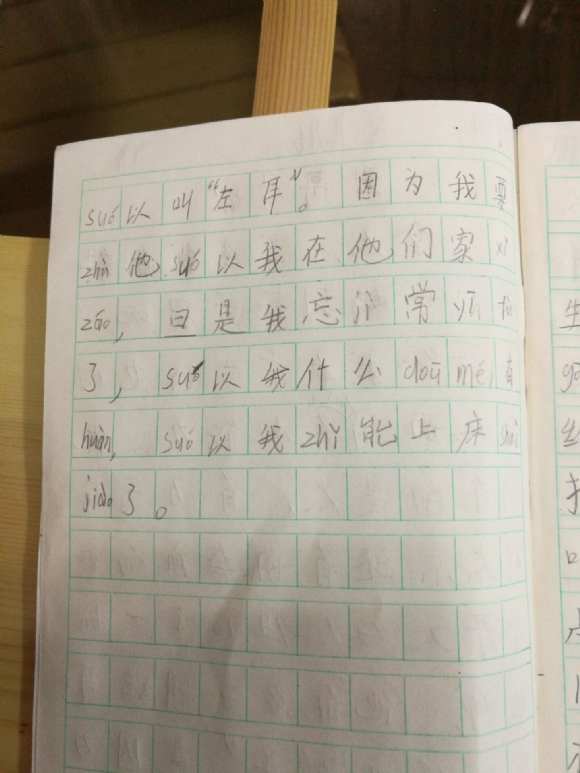 suó以叫“左耳”。因为我要
zhù他suó以我在他们家xǐ
zǎo，旦是我忘jì常yīfu
了，suó以我什么doūméi有
huàn，suó以我zhǐ能上床shuì
jiào了。
生